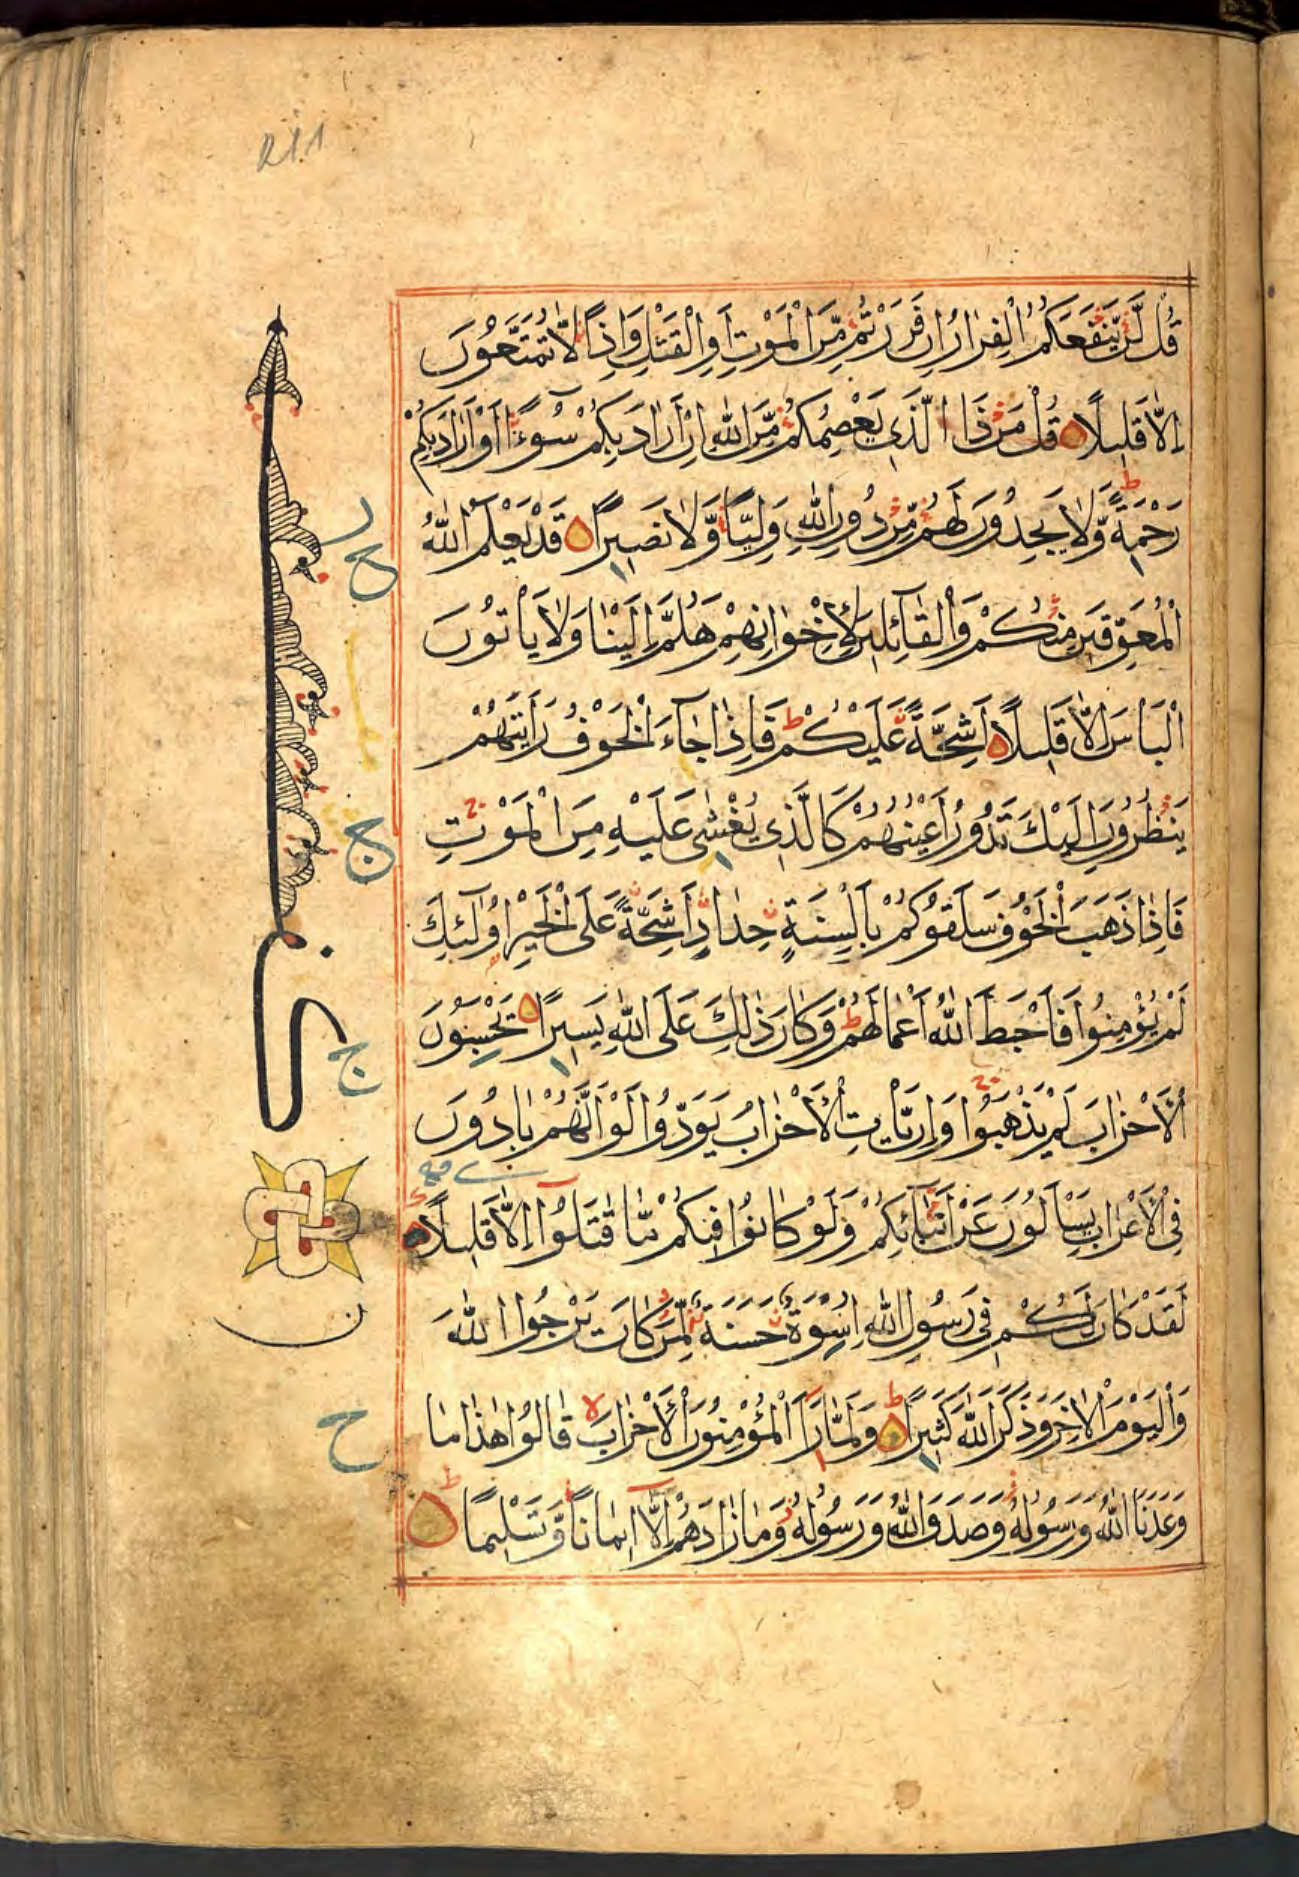 قُل لَّن يَّنفَعَكُمُ الْفِرَارُ اِن فَرَرْتُم مِّنَ الْمَوْتِ اَوِ الْقَتْلِ وَاِذًا لَّا تُمَتَّعُونَ
اِلَّا قَلِيلًا قُلْ مَن ذَا الَّذِي يَعْصِمُكُم مِّنَ اللّٰهِ اِنْ اَرَادَ بِكُمْ سُوءًا اَوْ اَرَادَ بِكُمْ
رَحْمَةً وَّلَا يَجِدُونَ لَهُم مِّن دُونِ اللّٰهِ وَلِيًّا وَّلَا نَصِيرًا قَدْ يَعْلَمُ اللّٰهُ
الْمُعَوِّقِينَ مِنكُمْ وَالْقَآئِلِينَ لِاِخْوَانِهِمْ هَلُمَّ اِلَيْنَا وَلَا يَاْتُونَ
الْبَاْسَ اِلَّا قَلِيلًا اَشِحَّةً عَلَيْكُمْ ط فَاِذَا جَآءَ الْخَوْفُ رَاَيْتَهُمْ
يَنظُرُونَ اِلَيْكَ تَدُورُ اَعْيُنُهُمْ كَالَّذِي يُغْشٰى عَلَيْهِ مِنَ الْمَوْتِ ج
فَاِذَا ذَهَبَ الْخَوْفُ سَلَقُوكُم بِاَلْسِنَةٍ حِدَادٍ اَشِحَّةً عَلَى الْخَيْرِ اُولٰٓئِكَ
لَمْ يُؤْمِنُوا فَاَحْبَطَ اللّٰهُ اَعْمَالَهُمْ ط وَكَانَ ذٰلِكَ عَلَى اللّٰهِ يَسِيرًا يَحْسَبُونَ
الْاَحْزَابَ لَمْ يَذْهَبُوا ج وَاِن يَّاْتِ الْاَحْزَابُ يَوَدُّوا لَوْ اَنَّهُم بَادُونَ
فِي الْاَعْرَابِ يَسْاَلُونَ عَنْ اَنبَآئِكُمْ وَلَوْ كَانُوا فِيكُم مَّا قَاتَلُوٓا اِلَّا قَلِيلًا
لَقَدْ كَانَ لَكُمْ فِي رَسُولِ اللّٰهِ اِسْوَةٌ حَسَنَةٌ لِّمَن كَانَ يَرْجُوا اللّٰهَ
وَالْيَوْمَ الْاٰخِرَ وَذَكَرَ اللّٰهَ كَثِيرًا ط وَلَمَّا رَاَ الْمُؤْمِنُونَ الْاَحْزَابَ لا قَالُوا هٰذَا مَا
وَعَدَنَا اللّٰهُ وَرَسُولُهُ وَصَدَقَ اللّٰهُ وَرَسُولُهُ وَمَا زَادَهُمْ اِلَّآ اِيمَانًا وَّتَسْلِيمًا ط